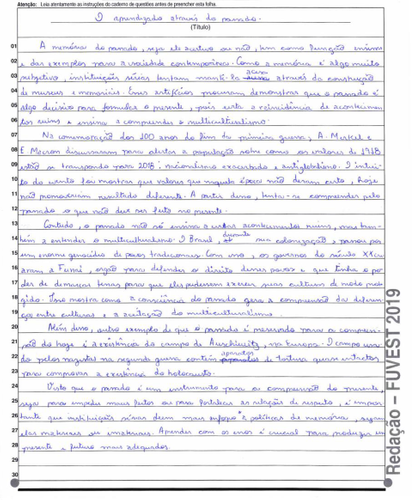 Atenção: Leia atentamente as instruções do caderno de questões antes de preencher esta folha.
O aprendizado através do passado.
(Título)
01 A memória do passado, seja ele positivo ou não, tem como função ensinar
02 e dar exemplos para a sociedade contemporânea. Como a memória é algo muito
03 subjetivo, instituições sérias tentam mantê-la acesa através da construção
04 de museus e memórias. Esses artifícios procuram demonstrar que o passado é
05 algo decisivo para formular o presente, pois evita a reincidência de acontecimen
06 tos ruins e ensina a compreender o multiculturalismo.
07 Na comemoração dos 100 anos do fim da primeira guerra, A. Merkel e
08 E. Macron discursaram para alertar a população sobre como os valores de 1918
09 estão se transpondo para 2018: nacionalismo exacerbado e antiglobalismo. O intui
10 to do evento foi mostrar que valores que naquela época não deram certo, hoje
11 não promoveriam resultado diferente. A partir disso, tenta-se compreender pelo
12 passado o que não deve ser feito no presente.
13 Contudo, o passado não só ensina a evitar acontecimentos ruins, mas tam-
14 bém a entender o multiculturalismo. O Brasil, durante sua colonização, passou por
15 um enorme genocídio de povos tradicionais. Com isso, os governos do século XX cri
16 aram a Funai, órgão para defender o direito desses povos e que tinha o po
17 der de demarcar terras para que eles pudessem exercer suas culturas de modo prote
18 gido. Isso mostra como a consciência do passado gera a compreensão das diferen
19 ças entre culturas e a aceitação do multiculturalismo.
20 Além disso, outro exemplo de que o passado é necessário para a compreen
21 são do hoje é a existência do campo de Auschwitz, na Europa. O campo usa
22 do pelos nazistas na segunda guerra contém aparatos de tortura quase intactos
23 para comprovar a existência do holocausto.
24 Visto que o passado é um instrumento para a compreensão do presente,
25 seja para impedir mais feitos ou para fortificar as relações de respeito, é impor
26 tante que instituições sérias deem mais enfoque a políticas de memória, sejam
27 elas materiais ou imateriais. Aprender com os erros é crucial para produzir um
28 presente e futuro mais adequados.
29
30
Redação – FUVEST 2019